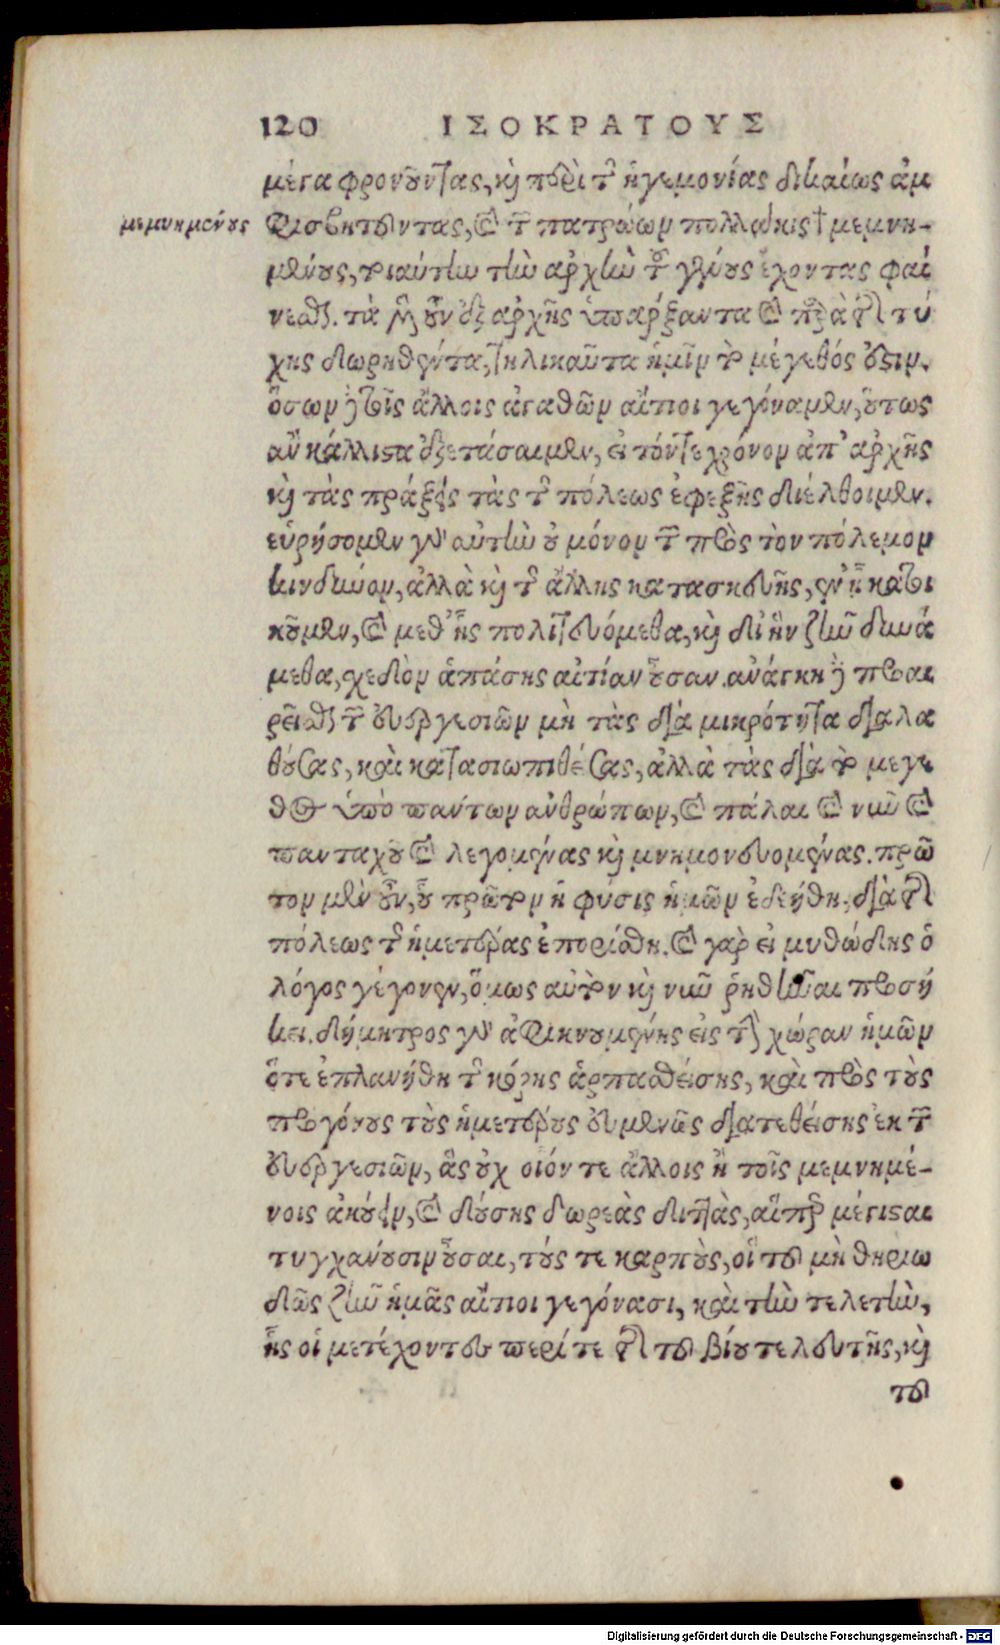 120 ΙΣΟΚΡΑΤΟΥΣ
μέγα φρονοῦντας, καὶ περὶ τῆς ἡγεμονίας δικαίως ἀμ
μεμνημένους
φισβητοῦντας, καὶ τῶν πατρώων πολλάκις † μεμνη-
μένους, τοιαύτην τὴν ἀρχὴν τοῦ γένους ἔχοντας φαί
νεσθαι. τὰ μὲν οὖν ἐξ αρχῆς ὑπαρξαντα καὶ παρὰ τῆς τύ
χης δωρηθέντα, τηλικαῦτα ἡμῖν τὸ μέγεθός ἐστιν.
ὅσων δὲ τοῖς ἄλλοις ἀγαθῶν αἴτιοι γεγόναμεν, οὕτως
ἂν κάλλιστα ἐξετάσαιμεν, εἰ τόν τε χρόνον ἀπ' αρχῆς
καὶ τὰς πράξεις τὰς τῆς πόλεως ἐφεξῆς διέλθοιμεν.
εὑρήσομεν γὰρ αὐτὴν οὐ μόνον τῶν πρὸς τὸν πόλεμον
κινδύνων, ἀλλὰ καὶ τῆς ἄλλης κατασκευῆς, ἐν ᾗ κατοι
κοῦμεν, καὶ μεθ' ἧς πολιτευόμεθα, καὶ δι' ἣν ζῆν δυνά
μεθα, σχεδὸν ἁπάσης αἰτίαν οὖσαν. ανάγκη δὲ προαι
ρεῖσθαι τῶν εὐεργεσιῶν μὴ τὰς διὰ μικρότητα διαλα
θούσας, καὶ κατασιωπηθείσας, ἀλλὰ τὰς διὰ τὸ μεγε
θος ὑπὸ παντων ανθρώπων, καὶ πάλαι καὶ νῦν καὶ
πανταχοῦ καὶ λεγομένας καὶ μνημονευομένας. πρῶ
τον μὲν οὖν, οὗ πρῶτον ἡ φύσις ἡμῶν ἐδεήθη, διὰ τῆς
πόλεως τῆς ἡμετέρας ἐπορίσθη. καὶ γὰρ εἰ μυθώδης ὁ
λόγος γέγονεν, ὅμως αὐτὸν καὶ νῦν ῥηθῆναι προσή
κει. δήμητρος γὰρ ἀφικνουμένης εἰς τὴν χώραν ἡμῶν
ὅτε ἐπλανήθη τῆς κόρης ἁρπασθείσης, καὶ πρὸς τοὺς
προγόνους τοὺς ἡμετέρους εὐμενῶς διατεθείσης ἐκ τῶν
εὐεργεσιῶν, ἃς οὐχ οἷόν τε ἄλλοις ἢ τοῖς μεμνημέ-
νοις ἀκούειν, καὶ δούσης δωρεὰς διττὰς, αἵπερ μέγισται
τυγχανουσιν οὖσαι, τούς τε καρποὺς, οἳ τοῦ μὴ θηριω
δῶς ζῆν ἡμᾶς αἴτιοι γεγόνασι, καὶ τὴν τελετὴν,
ἧς οἱ μετέχοντες περί τε τῆς τοῦ βίου τελευτῆς, καὶ
τοῦ
Digitalisierung gefördert durch die Deutsche Forschungsgemeinschaft - DFG